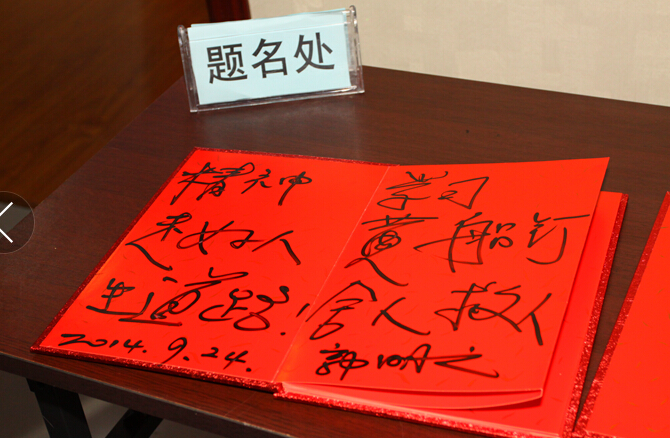 题名处
精神
走好人
生道路！
2014.9.24.
学习
黄船钉
舍人救人
郭明义